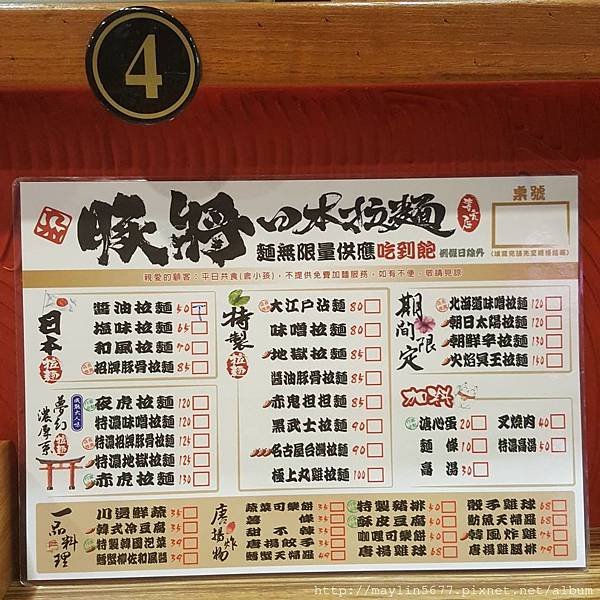 4
豚將日本拉麵
桌號
麵無限量供應吃到飽 例假日除外
親愛的顧客：平日共食(含小孩)，不提供免費加麵服務，如有不便，敬請見諒
日本拉麵
醬油拉麵 50
塩味拉麵 65
和風拉麵 70
招牌豚骨拉麵 85
夢幻濃厚系拉麵
夜虎拉麵 120
特濃味噌拉麵 120
特濃招牌豚骨拉麵
特濃地獄拉麵
赤虎拉麵 130
特製拉麵
大江戶沾麵 80
味噌拉麵 80
地獄拉麵 85
醬油豚骨拉麵 85
赤鬼担担麵 85
黑武士拉麵 90
名古屋台灣拉麵 90
極上丸雞拉麵 100
期間限定
北海道味噌拉麵 120
朝日太陽拉麵 120
朝鮮辛拉麵 130
火焰冥王拉麵 150
加料
溏心蛋 20
叉燒肉 40
麵條 10
特濃高湯 50
高湯 30
一品料理
川燙鮮蔬 35
韓式冷豆腐 35
特製韓國泡菜 39
鱈蟹柳佐和風醬 39
唐揚炸物
蔬菜可樂餅 35
薯條 35
甜不辣 35
唐揚餃子 35
鱈蟹天婦羅 35
特製豬排 50
酥皮豆腐 50
咖哩可樂餅 60
唐揚雞球 68
骰子雞球 68
魴魚天婦羅 68
韓風炸雞 75
唐揚雞腿排 79
http://maylin5677.pixnet.net/album